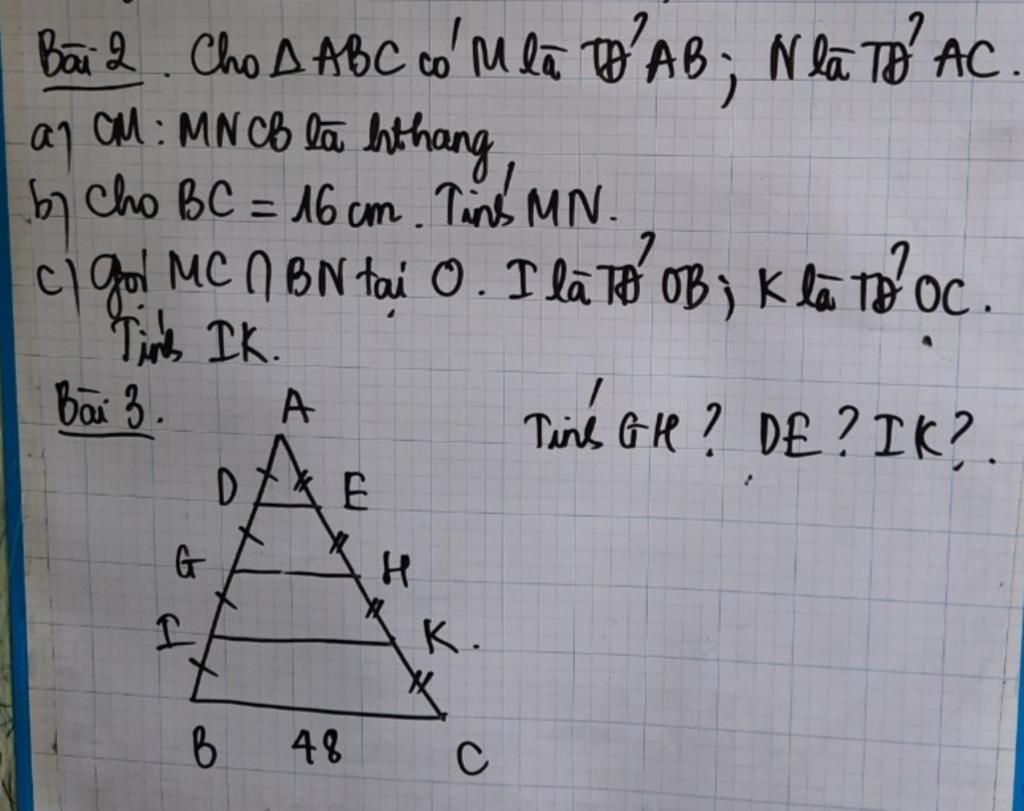 Bài 2. Cho ΔABC có M là TĐ' AB; N là TĐ' AC.
a) CM: MNCB là hthang
b) Cho BC = 16 cm. Tính MN.
c) gọi MC ∩ BN tại O. I là TĐ' OB; K là TĐ' OC.
Tính IK.
Bài 3.
Tính GH? DE? IK?.
A
D E
G H
I K.
B 48 C